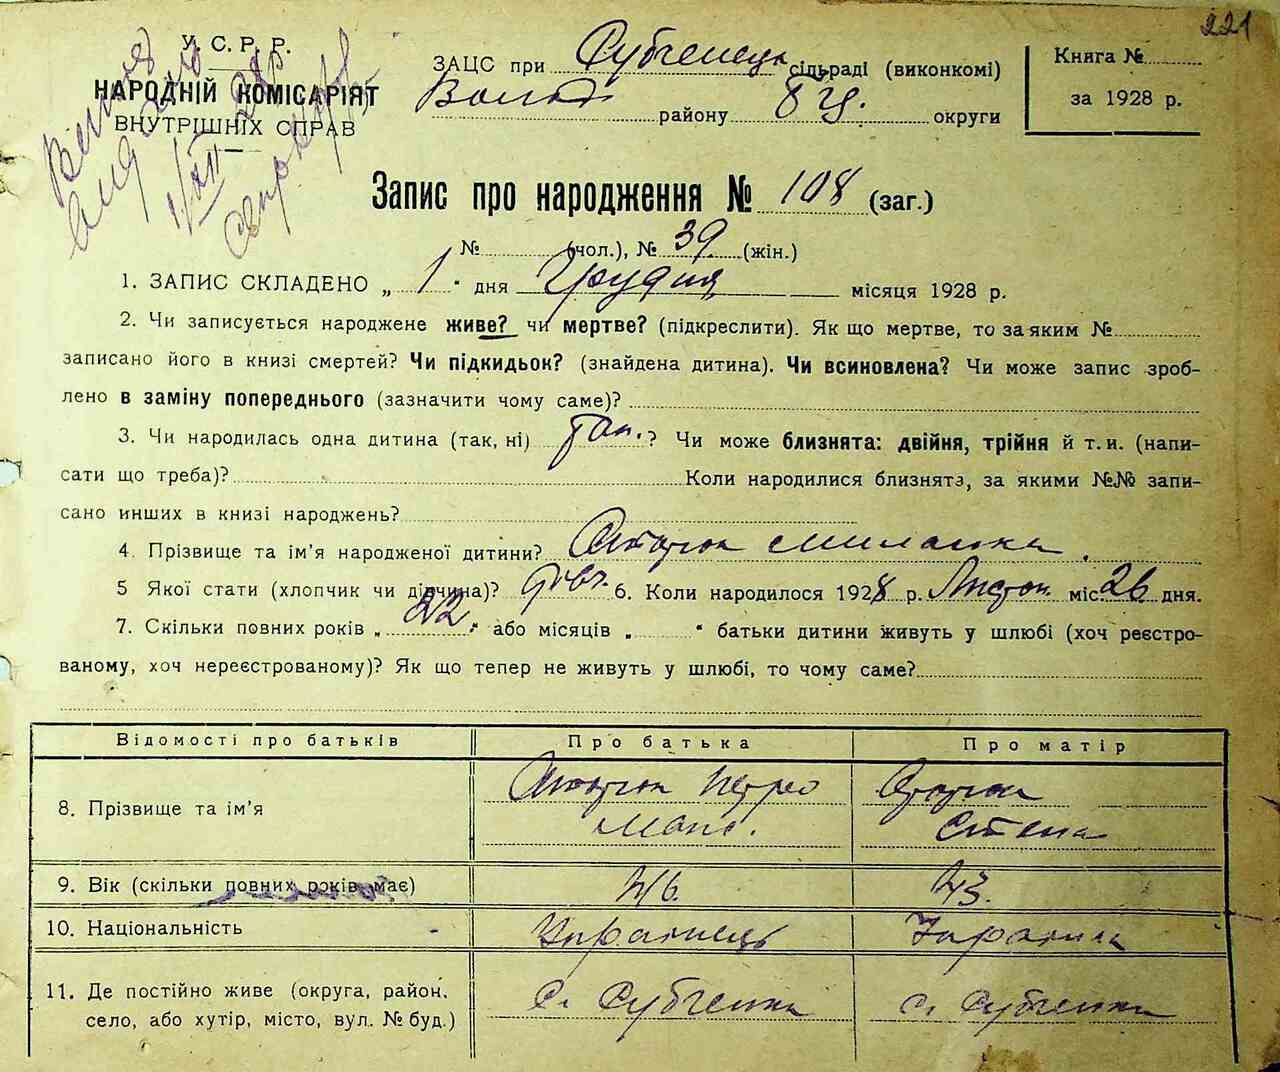 221
У. С. Р. Р.
НАРОДНІЙ КОМІСАРІЯТ
ВНУТРІШНІХ СПРАВ
ЗАЦС при Субченець сільраді (виконкомі)
Волод району БЦ. округи
Книга №
за 1928 р.
Запис про народження № 108 (заг.)
№ (чол.), № 39. (жін.)
1. ЗАПИС СКЛАДЕНО „ 1 “ дня Грудня місяця 1928 р.
2. Чи записується народжене живе? чи мертве? (підкреслити). Як що мертве, то за яким №
записано його в книзі смертей? Чи підкидьок? (знайдена дитина). Чи всиновлена? Чи може запис зроб-
лено в заміну попереднього (зазначити чому саме)?
3. Чи народилась одна дитина (так, ні) Так. ? Чи може близнята: двійня, трійня й т. и. (напи-
сати що треба)? Коли народилися близнята, за якими №№ запи-
сано инших в книзі народжень?
4. Прізвище та ім’я народженої дитини?
5 Якої стати (хлопчик чи дівчина)? дівч. 6. Коли народилося 1928 р. Листоп. міс. 26 дня.
7. Скільки повних років „ 22. “ або місяців „ “ батьки дитини живуть у шлюбі (хоч реєстро-
ваному, хоч нереєстрованому)? Як що тепер не живуть у шлюбі, то чому саме?
Відомості про батьків Про батька Про матір
8. Прізвище та ім’я Петро
9. Вік (скільки повних років має) 46. 43.
10. Національність Українець Українка
11. Де постійно живе (округа, район, с. Субченка с. Субченка
село, або хутір, місто, вул. № буд.)